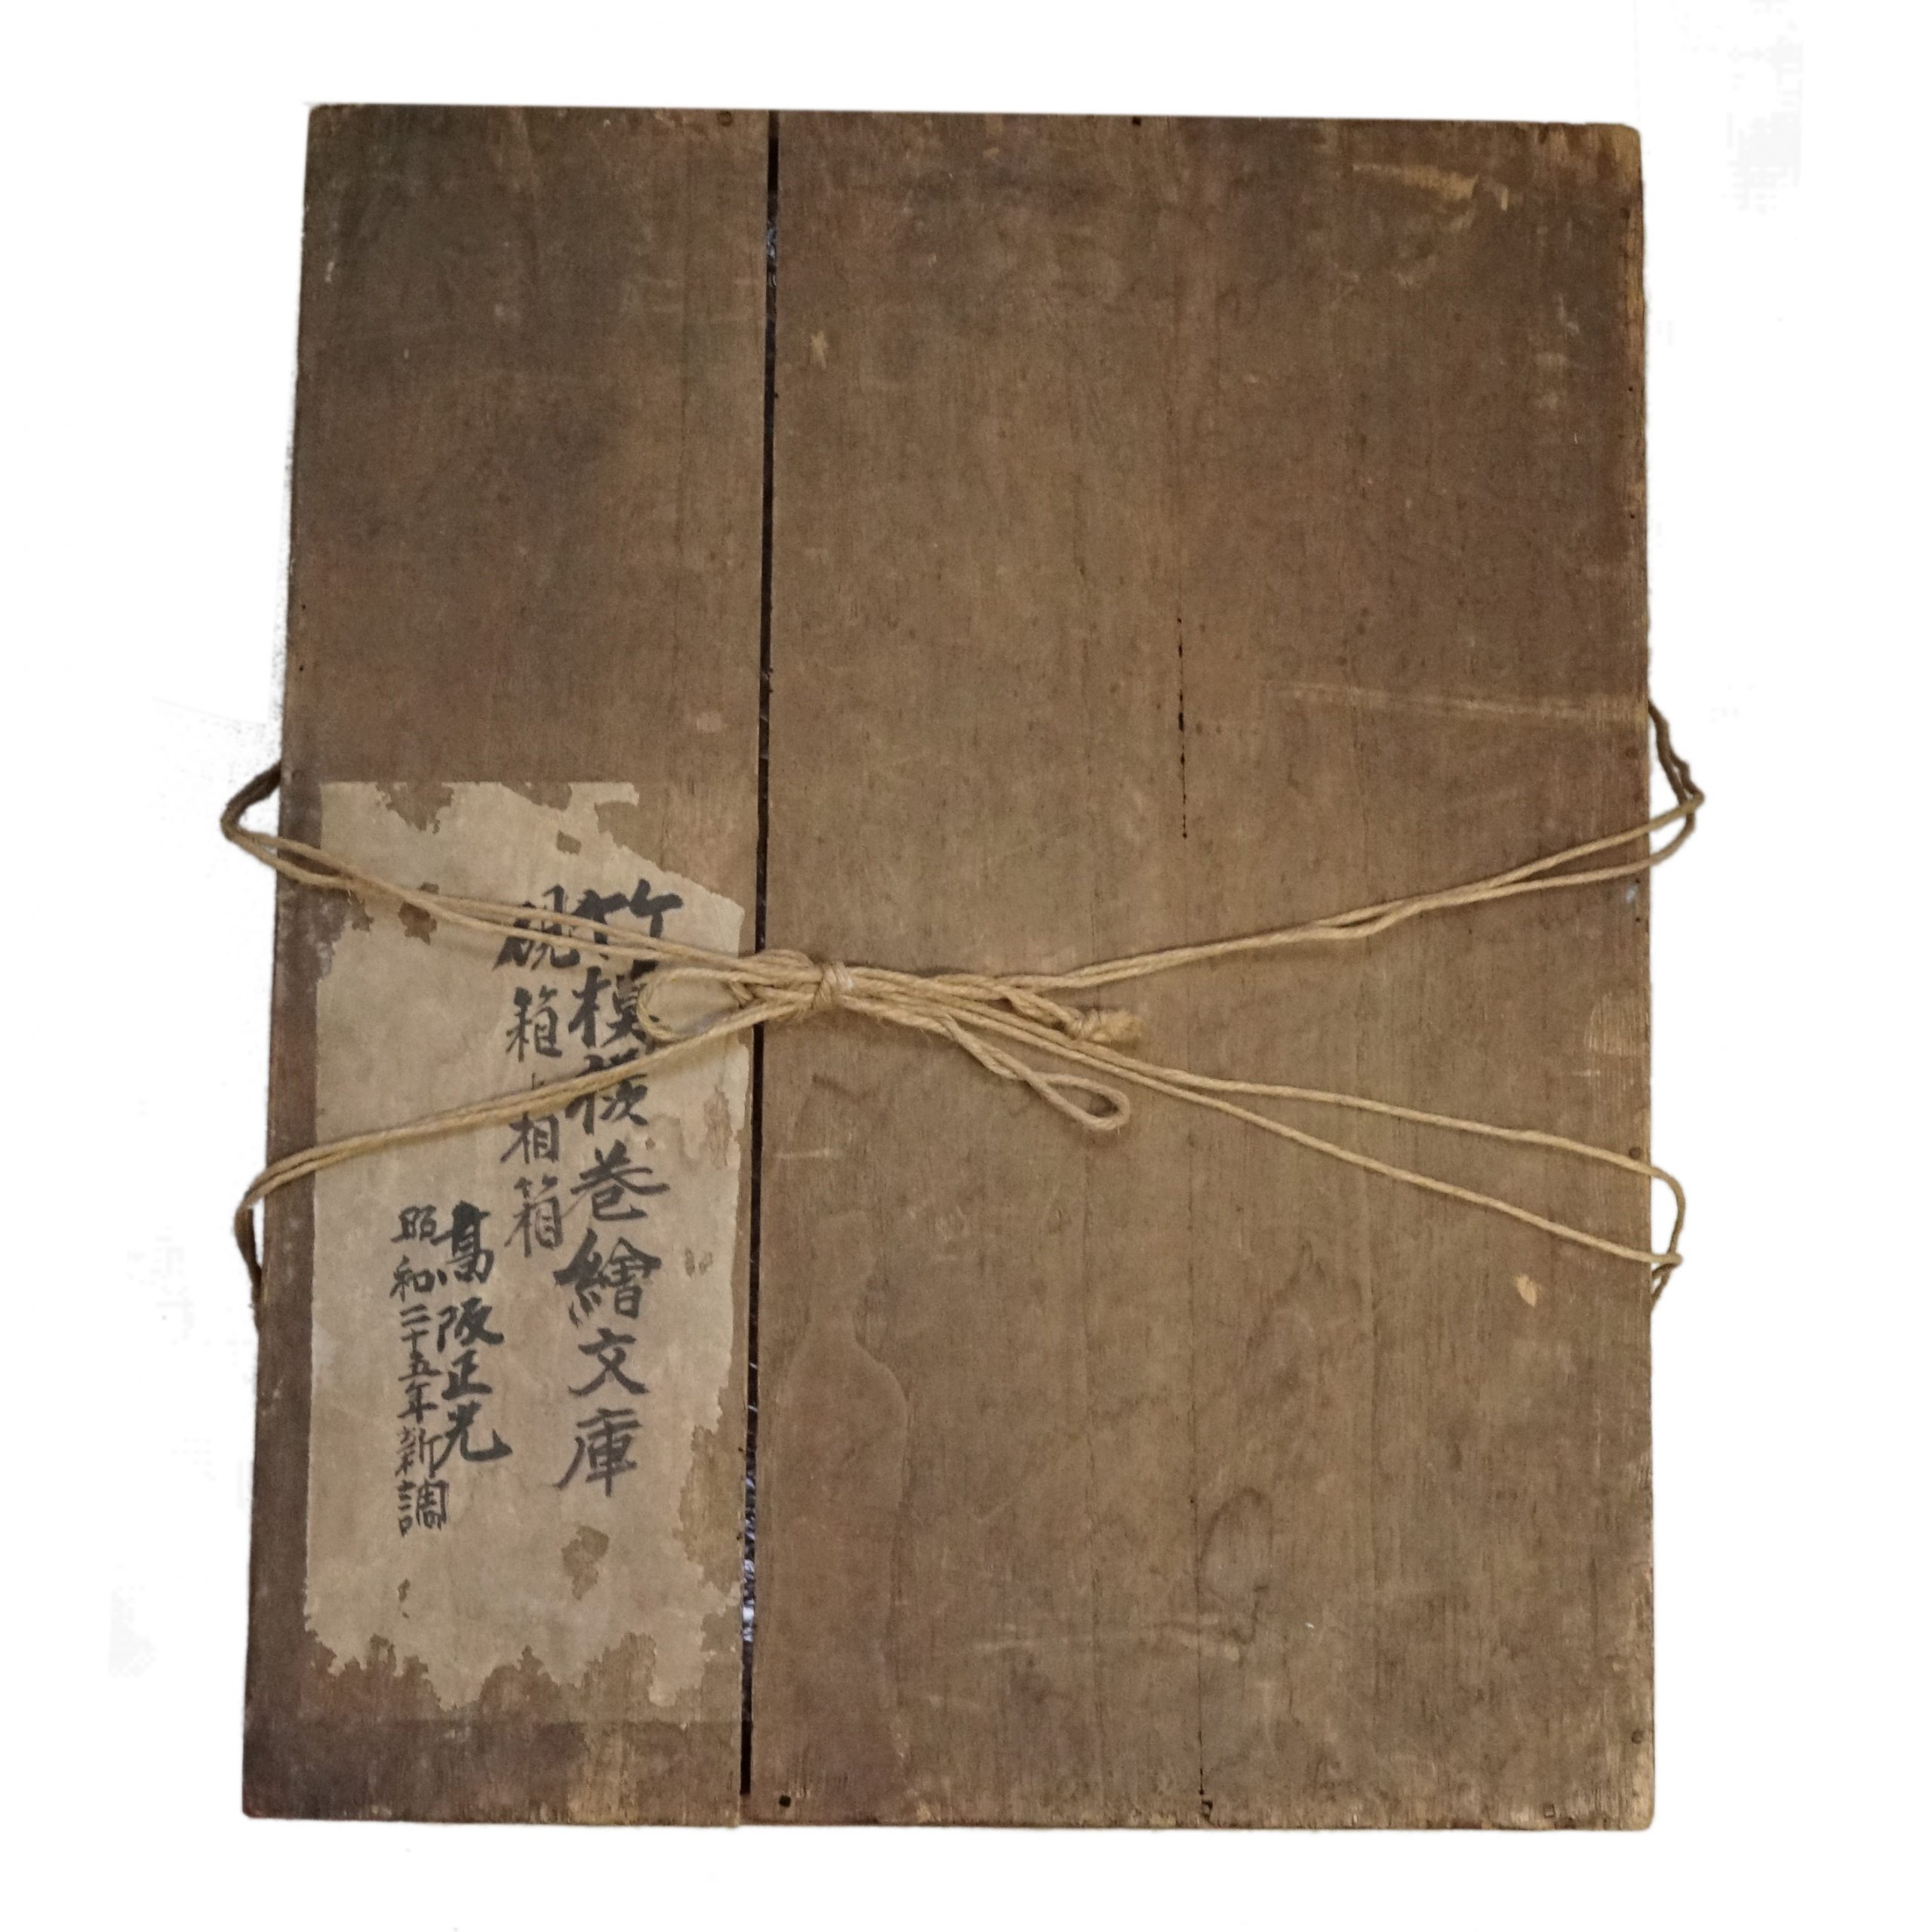 竹模様巻繪文庫
硯箱ト相箱
髙阪正光
昭和二十五年新調